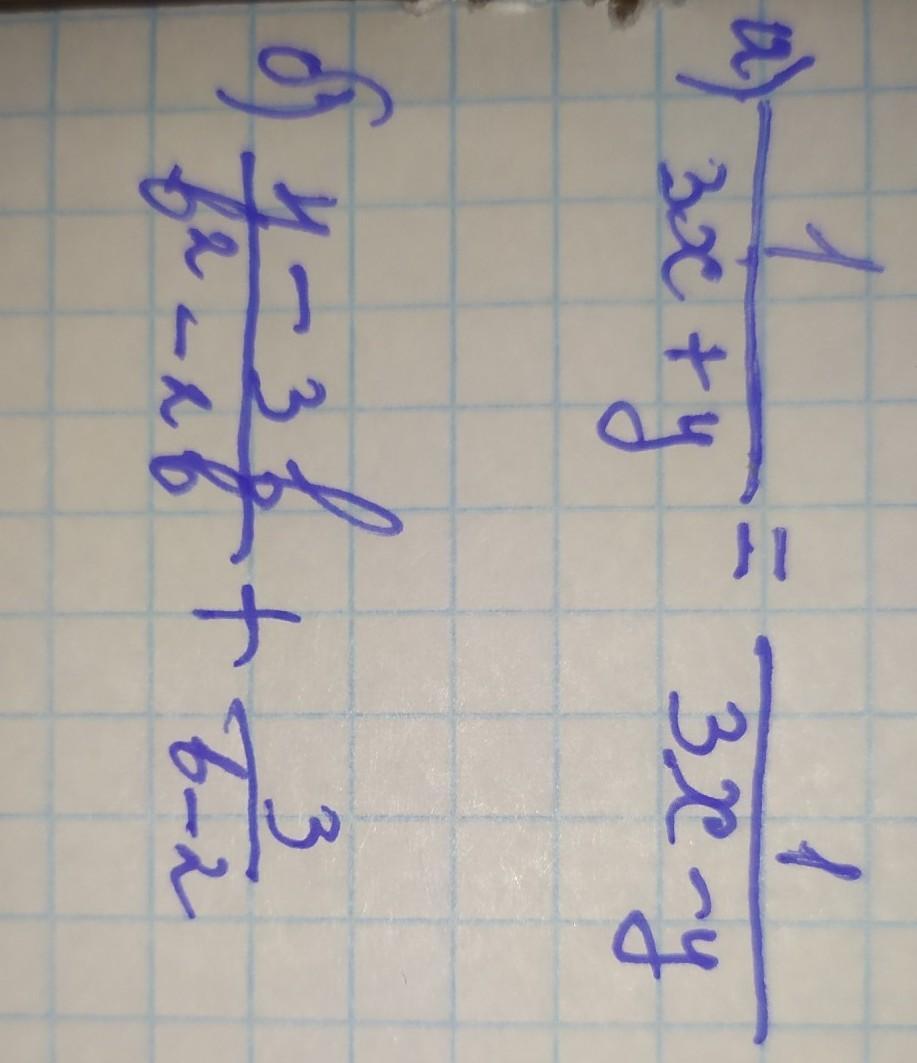 а) 1/(3x + y) = 1/(3x - y)
б) (4 - 3b)/(b2 - 2b) + 3/(b - 2)